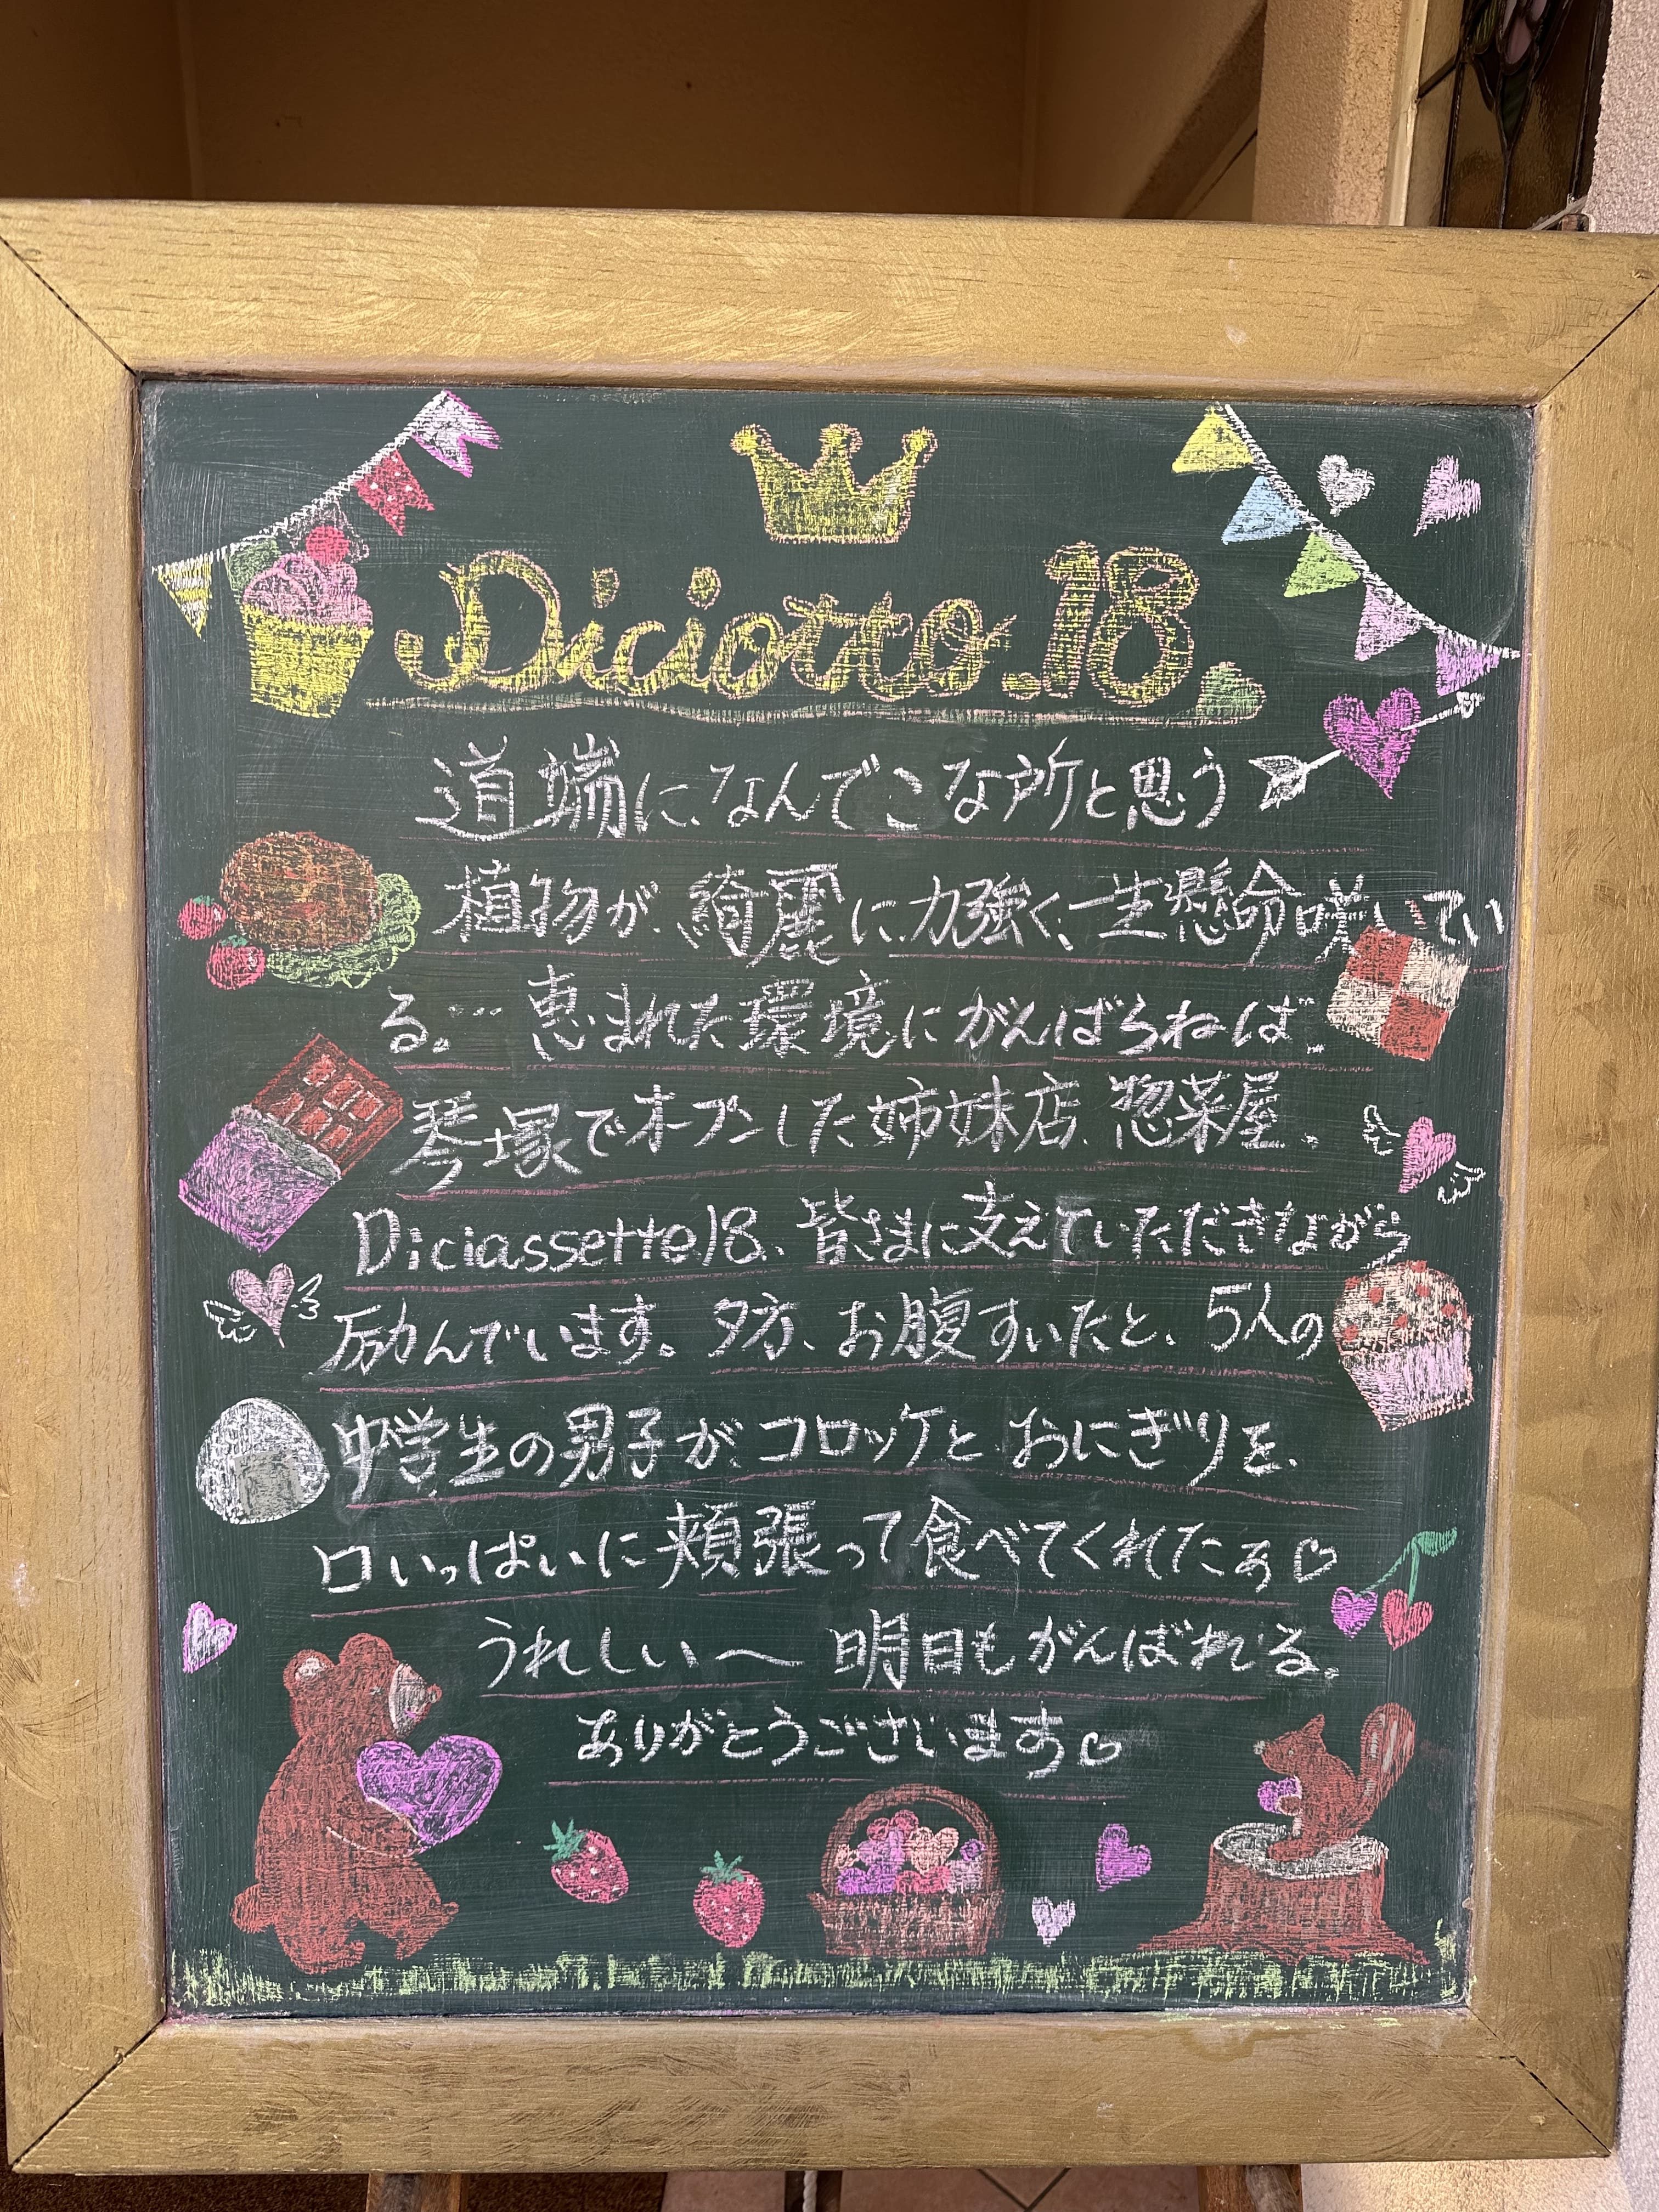 Diciotto.18
道端に、なんでこな所と思う
植物が、綺麗に、力強く、一生懸命咲いてい
る。… 恵まれた環境にがんばらねば。
琴塚でオープンした姉妹店、惣菜屋、
Diciassette.18、皆さまに支えていただきながら
励んでいます。夕方、お腹すいたと、5人の
中学生の男子が、コロッケと、おにぎりを、
口いっぱいに頬張って食べてくれたぁ♡
うれしい〜 明日もがんばれる。
ありがとうございます♡